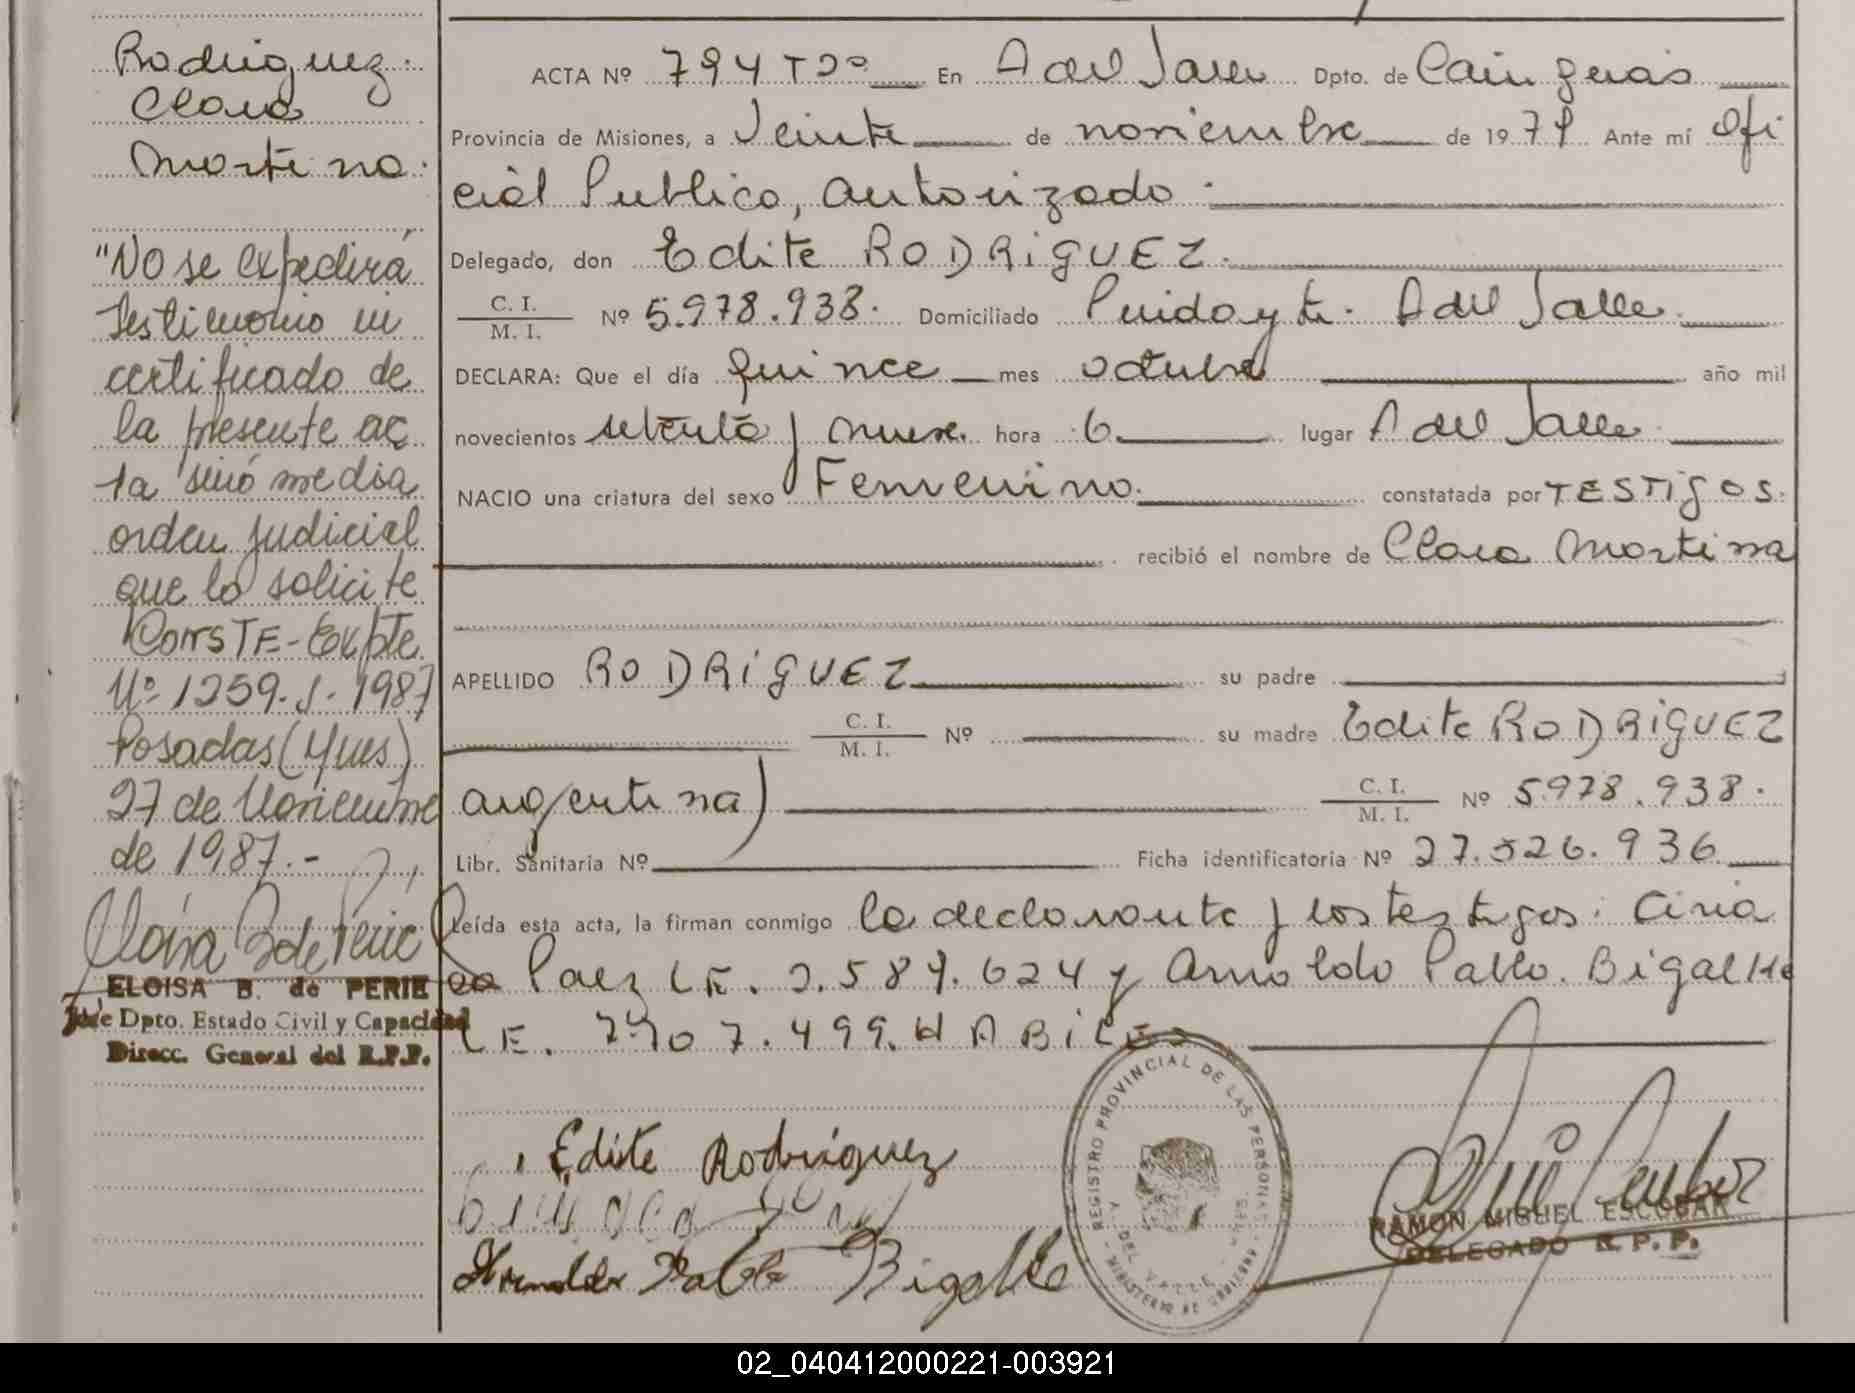 Rodriguez.
Clara
Martina.
"No se expedirá
testimonio ni
certificado de
la presente ac
ta sinó media
orden judicial
que lo solicite
CONSTE-Expte
Nº 1259.J.1987
Posadas (Mnes)
27 de Noviembre
de 1987.-
ELOISA B. de PERIE
Jefe Dpto. Estado Civil y Capacidad
Direcc. General del R.P.P.
ACTA Nº 794 Tº 2º En A del Valle Dpto. de Cainguas
Provincia de Misiones, a Veinte de noviembre de 1979 Ante mí Ofi
cial Publico, autorizado.
Delegado, don Edite RODRIGUEZ.
C. I.
M. I. Nº 5.978.938. Domiciliado Puidoyte. A del Valle.
DECLARA: Que el día quince mes octubre año mil
novecientos setenta y nueve. hora 6 lugar A del Valle.
NACIO una criatura del sexo Femenino. constatada por TESTIGOS.
recibió el nombre de Clara Martina
APELLIDO RODRIGUEZ su padre
C. I.
M. I. Nº su madre Edite RODRIGUEZ
argentina) C. I.
M. I. Nº 5.978.938.
Libr. Sanitaria Nº Ficha identificatoria Nº 27.526.936
Leída esta acta, la firman conmigo la declarante y los testigos: Ciria
co Paez LE. 2.589.624 y Arnoldo Pablo. Bigalke
LE. 7.707.499. HABILES
REGISTRO PROVINCIAL DE LAS PERSONAS
A. DEL VALLE - MNES.
MINISTERIO DE GOBIERNO
Edite Rodriguez
Arnoldo Pablo Bigalke
RAMON MIGUEL ESCOBAR
DELEGADO R. P. P.
02_040412000221-003921